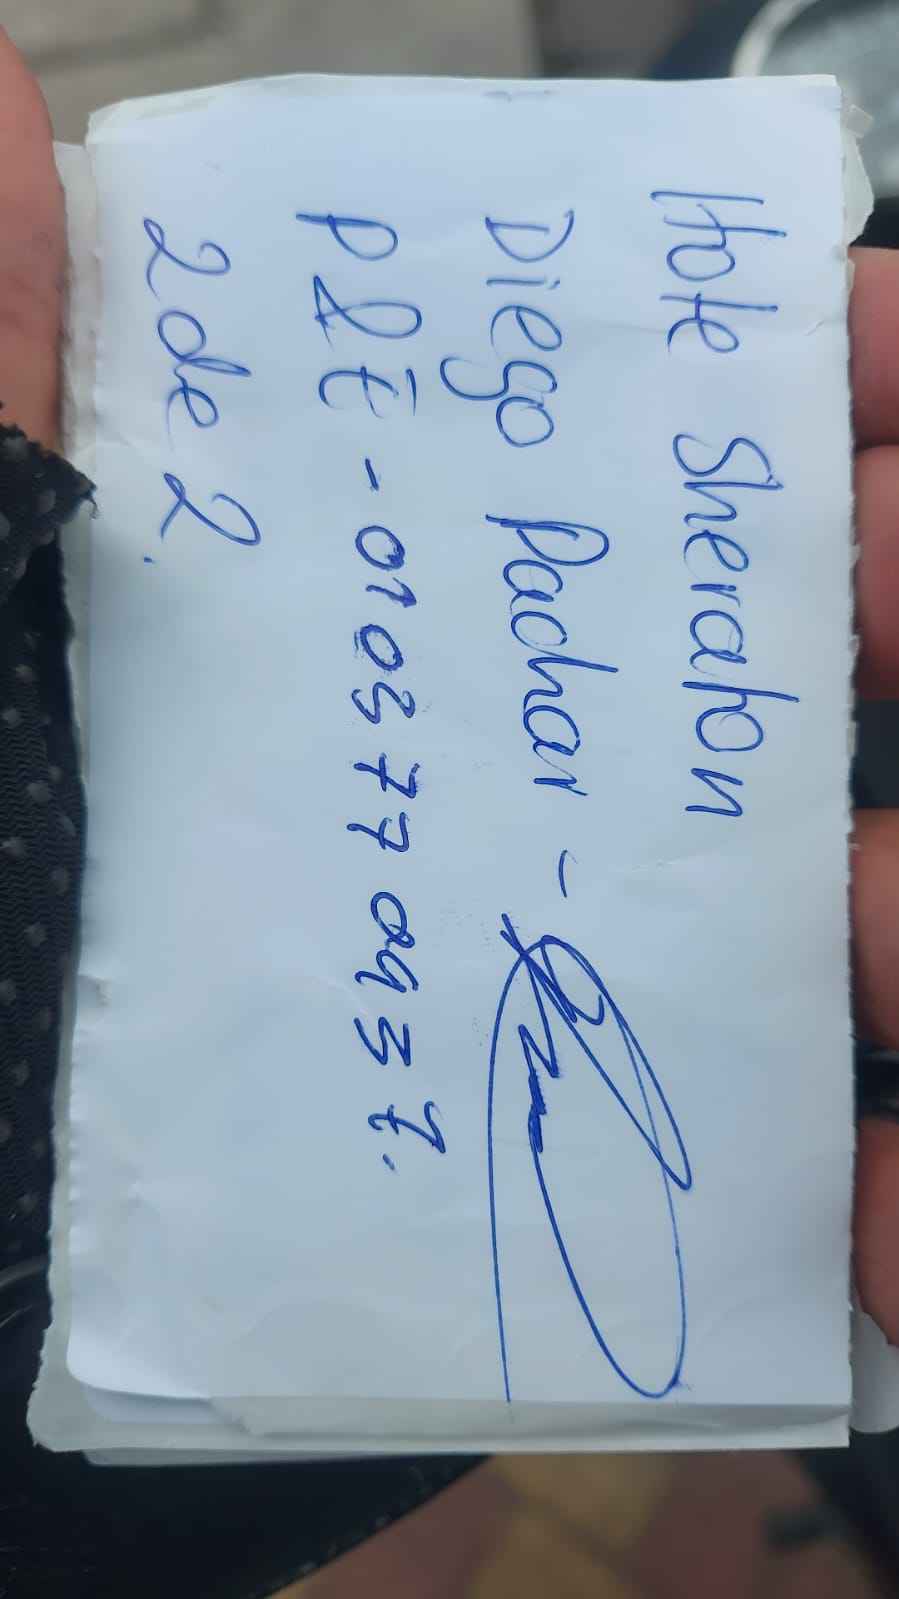 Hote Sheraton
Diego Padhar -
PLE - 0103770937.
2 de 2.